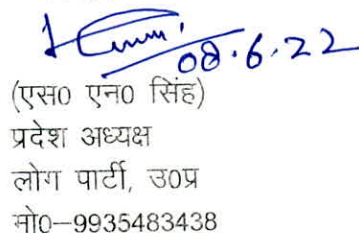 08.6.22
(एस0 एन0 सिंह)
प्रदेश अध्यक्ष
लोग पार्टी, उ0प्र
मो0-9935483438